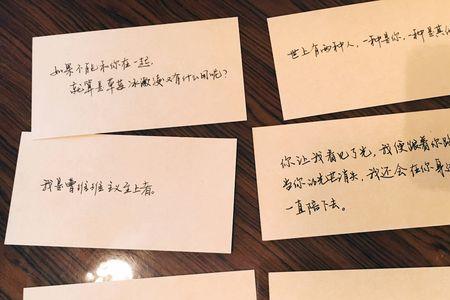 如果不能和你在一起，
就算是草莓冰激凌又有什么用呢？
世上有两种人，一种是你，一种是
我是曹 主义至上者。
你让我看见了光，我便跟着你
当你的光芒消失，我还会在你身
一直陪下去。